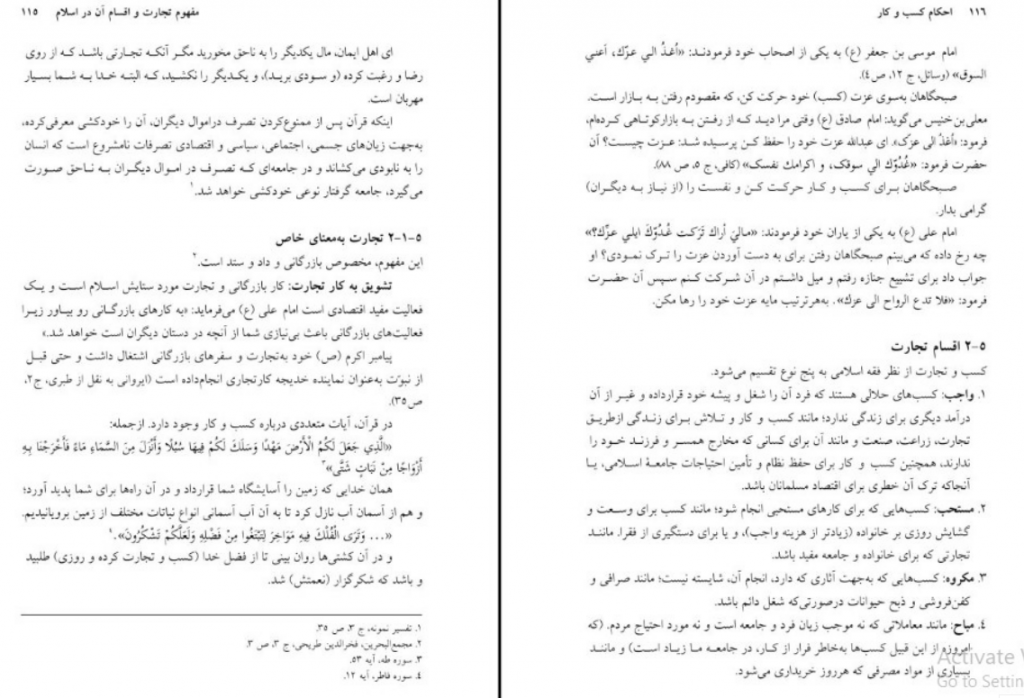 مفهوم تجارت و اقسام آن در اسلام ۱۱۵
ای اهل ایمان، مال یکدیگر را به ناحق مخورید مگر آنکه تجارتی باشد که از روی
رضا و رغبت کرده (و سودی برید)، و یکدیگر را نکشید، که البته خدا به شما بسیار
مهربان است.
اینکه قرآن پس از ممنوع‌کردن تصرف دراموال دیگران، آن را خودکشی معرفی‌کرده،
به‌جهت زیان‌های جسمی، اجتماعی، سیاسی و اقتصادی تصرفات نامشروع است که انسان
را به نابودی می‌کشاند و در جامعه‌ای که تصرف در اموال دیگران به ناحق صورت
می‌گیرد، جامعه گرفتار نوعی خودکشی خواهد شد.۱
۵-۱-۲ تجارت به‌معنای خاص
این مفهوم، مخصوص بازرگانی و داد و ستد است.۲
تشویق به کار تجارت: کار بازرگانی و تجارت مورد ستایش اسلام است و یک
فعالیت مفید اقتصادی است امام علی (ع) می‌فرماید: «به کارهای بازرگانی رو بیاور زیرا
فعالیت‌های بازرگانی باعث بی‌نیازی شما از آنچه در دستان دیگران است خواهد شد.»
پیامبر اکرم (ص) خود به‌تجارت و سفرهای بازرگانی اشتغال داشت و حتی قبل
از نبوّت به‌عنوان نماینده خدیجه کارتجاری انجام‌داده است (ایروانی به نقل از طبری، ج۲،
ص۳۵).
در قرآن، آیات متعددی درباره کسب و کار وجود دارد. ازجمله:
«الَّذِي جَعَلَ لَكُمُ الْأَرْضَ مَهْدًا وَسَلَكَ لَكُمْ فِيهَا سُبُلًا وَأَنْزَلَ مِنَ السَّمَاءِ مَاءً فَأَخْرَجْنَا بِهِ
أَزْوَاجًا مِنْ نَبَاتٍ شَتَّى»۳
همان خدایی که زمین را آسایشگاه شما قرارداد و در آن راه‌ها برای شما پدید آورد؛
و هم از آسمان آب نازل کرد تا به آن آب آسمانی انواع نباتات مختلف از زمین برویانیدیم.
«... وَتَرَى الْفُلْكَ فِيهِ مَوَاخِرَ لِتَبْتَغُوا مِنْ فَضْلِهِ وَلَعَلَّكُمْ تَشْكُرُونَ».۴
و در آن کشتی‌ها روان بینی تا از فضل خدا (کسب و تجارت کرده و روزی) طلبید
و باشد که شکرگزار (نعمتش) شد.
۱. تفسیر نمونه، ج ۳، ص ۳۵.
۲. مجمع‌البحرین، فخرالدین طریحی، ج ۳، ص ۳.
۳. سوره طه، آیه ۵۳.
۴. سوره فاطر، آیه ۱۲.
۱۱۶ احکام کسب و کار
امام موسی بن جعفر (ع) به یکی از اصحاب خود فرمودند: «أغدُ الي عزّك، أعني
السوق» (وسائل، ج ۱۲، ص ۴).
صبحگاهان به‌سوی عزت (کسب) خود حرکت کن، که مقصودم رفتن به بازار است.
معلی‌بن‌خنیس می‌گوید: امام صادق (ع) وقتی مرا دید که از رفتن به بازارکوتاهی کرده‌ام،
فرمود: «أغدُ الی عزّک». ای عبدالله عزت خود را حفظ کن. پرسیده شد: عزت چیست؟ آن
حضرت فرمود: «غُدُوّك الي سوقك، و اكرامك نفسك» (کافی، ج ۵، ص ۸۸).
صبحگاهان برای کسب و کار حرکت کن و نفست را (از نیاز به دیگران)
گرامی بدار.
امام علی (ع) به یکی از یاران خود فرمودند: «ماليَ أراك تَرَكت غُدُوّكَ ايلي عزّك؟»
چه رخ داده که می‌بینم صبحگاهان رفتن برای به دست آوردن عزت را ترک نمودی؟ او
جواب داد برای تشییع جنازه رفتم و میل داشتم در آن شرکت کنم سپس آن حضرت
فرمود: «فلا تدع الرواح الی عزك». به‌هرترتیب مایه عزت خود را رها مکن.
۵-۲ اقسام تجارت
کسب و تجارت از نظر فقه اسلامی به پنج نوع تقسیم می‌شود.
۱. واجب: کسب‌های حلالی هستند که فرد آن را شغل و پیشه خود قرارداده و غیر از آن
درآمد دیگری برای زندگی ندارد؛ مانند کسب و کار و تلاش برای زندگی ازطریق
تجارت، زراعت، صنعت و مانند آن برای کسانی که مخارج همسر و فرزند خود را
ندارند، همچنین کسب و کار برای حفظ نظام و تأمین احتیاجات جامعهٔ اسلامی، یا
آنجاکه ترک آن خطری برای اقتصاد مسلمانان باشد.
۲. مستحب: کسب‌هایی که برای کارهای مستحبی انجام شود؛ مانند کسب برای وسعت و
گشایش روزی بر خانواده (زیادتر از هزینه واجب)، و یا برای دستگیری از فقرا. مانند
تجارتی که برای خانواده و جامعه مفید باشد.
۳. مکروه: کسب‌هایی که به‌جهت آثاری که دارد، انجام آن، شایسته نیست؛ مانند صرافی و
کفن‌فروشی و ذبح حیوانات درصورتی‌که شغل دائم باشد.
۴. مباح: مانند معاملاتی که نه موجب زیان فرد و جامعه است و نه مورد احتیاج مردم. (که
امروزه از این قبیل کسب‌ها به‌خاطر فرار از کار، در جامعه ما زیاد است) و مانند
بسیاری از مواد مصرفی که هرروز خریداری می‌شود.
Activate
Go to Settin